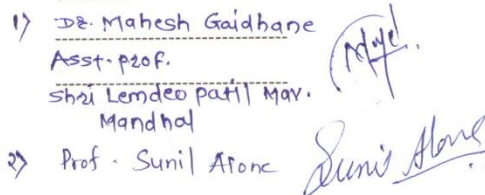 1) Dr. Mahesh Gaidhane
Asst. prof.
Shri Lemdeo patil Mav.
Mandhal
2) Prof. Sunil Alone
Sunil Alone